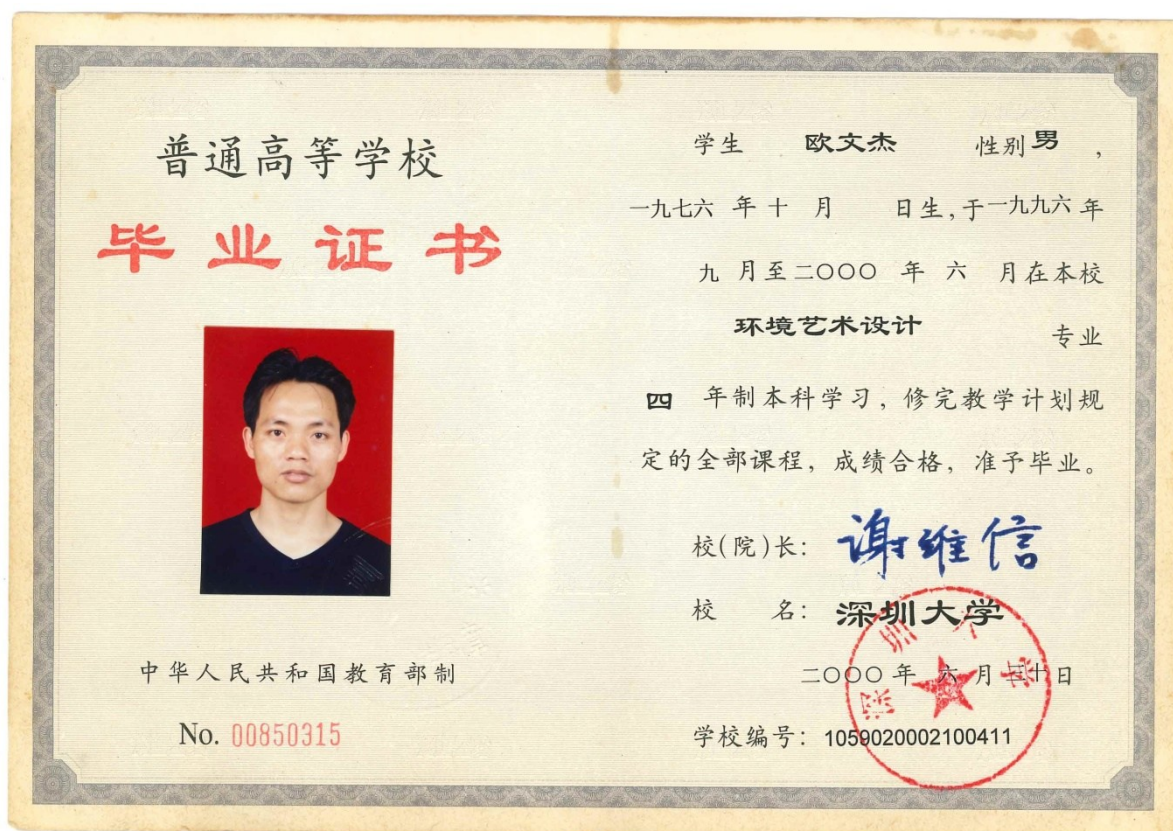 普通高等学校
毕业证书
中华人民共和国教育部制
No. 00850315
学生 欧文杰 性别 男 ,
一九七六 年 十 月 日生,于 一九九六 年
九 月至 二〇〇〇 年 六 月在本校
环境艺术设计 专业
四 年制本科学习，修完教学计划规
定的全部课程，成绩合格，准予毕业。
校(院)长: 谢维信
校 名: 深圳大学
二〇〇〇 年 六 月 三十 日
学校编号: 1059020002100411
深圳大学